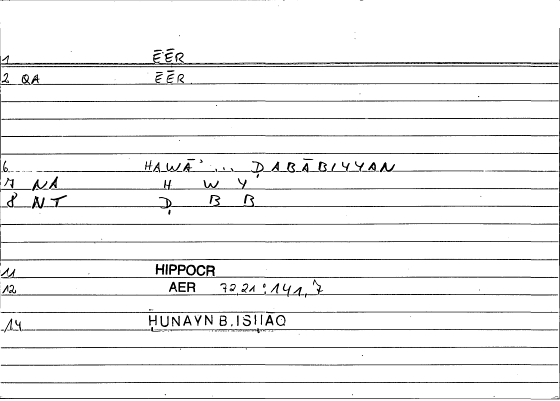 1 ĒĒR
2 QA ĒĒR
6 HAWĀʾ ... ḌABĀBIYYAN
7 NA H W Y
8 NT Ḍ B B
11 HIPPOCR
12 AER 72,21 : 141,7
14 HUNAYN B. ISHAQ